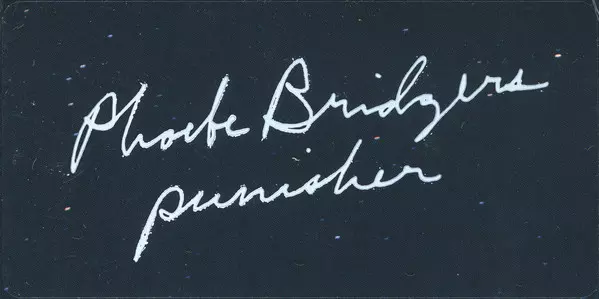 Phoebe Bridgers
punisher